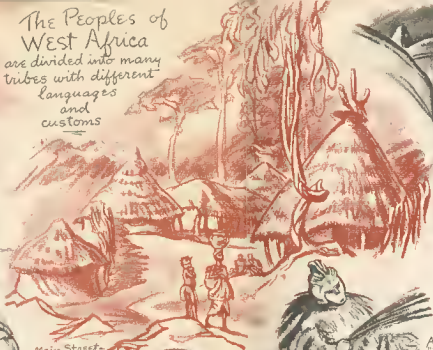 The Peoples of
West Africa
are divided into many
tribes with different
languages
and
customs
Main Street